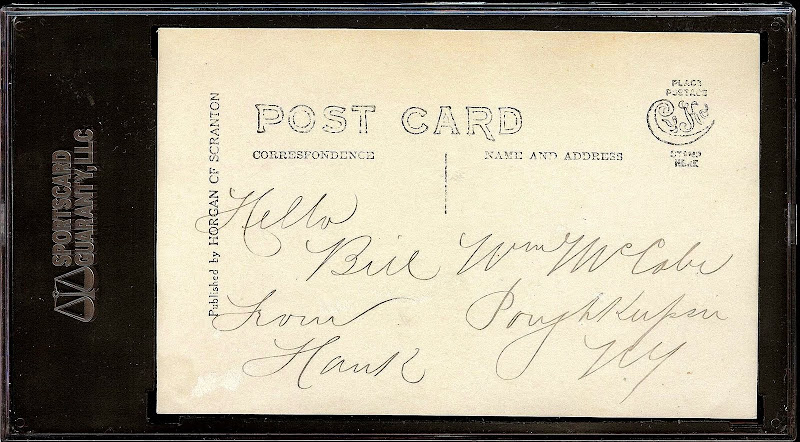 SPORTSCARD
GUARANTY, LLC
Published by HORGAN OF SCRANTON
POST CARD
CORRESPONDENCE
NAME AND ADDRESS
PLACE
POSTAGE
STAMP
HERE
Hello
Bill
From
Hank
Wm McCabe
Poughkeepsie
N.Y.